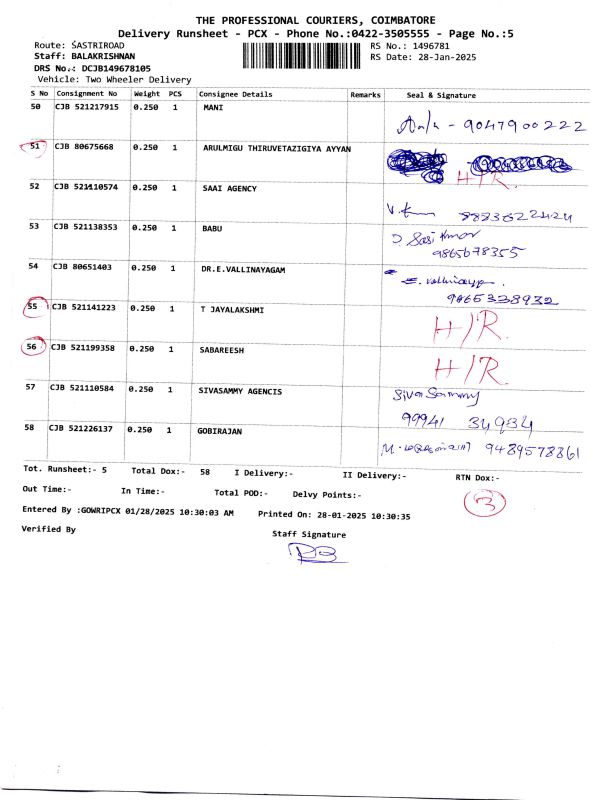 THE PROFESSIONAL COURIERS, COIMBATORE
Delivery Runsheet - PCX - Phone No.:0422-3505555 - Page No.:5
Route: SASTRIROAD RS No.: 1496781
Staff: BALAKRISHNAN RS Date: 28-Jan-2025
DRS No.: DCJB149678105
Vehicle: Two Wheeler Delivery
S No Consignment No Weight PCS Consignee Details Remarks Seal & Signature
50 CJB 521217915 0.250 1 MANI
- 9047900222
51 CJB 80675668 0.250 1 ARULMIGU THIRUVETAZIGIYA AYYAN
H/R.
52 CJB 521110574 0.250 1 SAAI AGENCY
53 CJB 521138353 0.250 1 BABU
D. Sasi Kumar
9865678355
54 CJB 80651403 0.250 1 DR.E.VALLINAYAGAM
E. Vallinayagam
9865328932
55 CJB 521141223 0.250 1 T JAYALAKSHMI H/R.
56 CJB 521199358 0.250 1 SABAREESH H/R.
57 CJB 521110584 0.250 1 SIVASAMMY AGENCIS Siva Sammy
99941 34934
58 CJB 521226137 0.250 1 GOBIRAJAN
9489578861
Tot. Runsheet:- 5 Total Dox:- 58 I Delivery:- II Delivery:- RTN Dox:-
3
Out Time:- In Time:- Total POD:- Delvy Points:-
Entered By :GOWRIPCX 01/28/2025 10:30:03 AM Printed On: 28-01-2025 10:30:35
Verified By Staff Signature